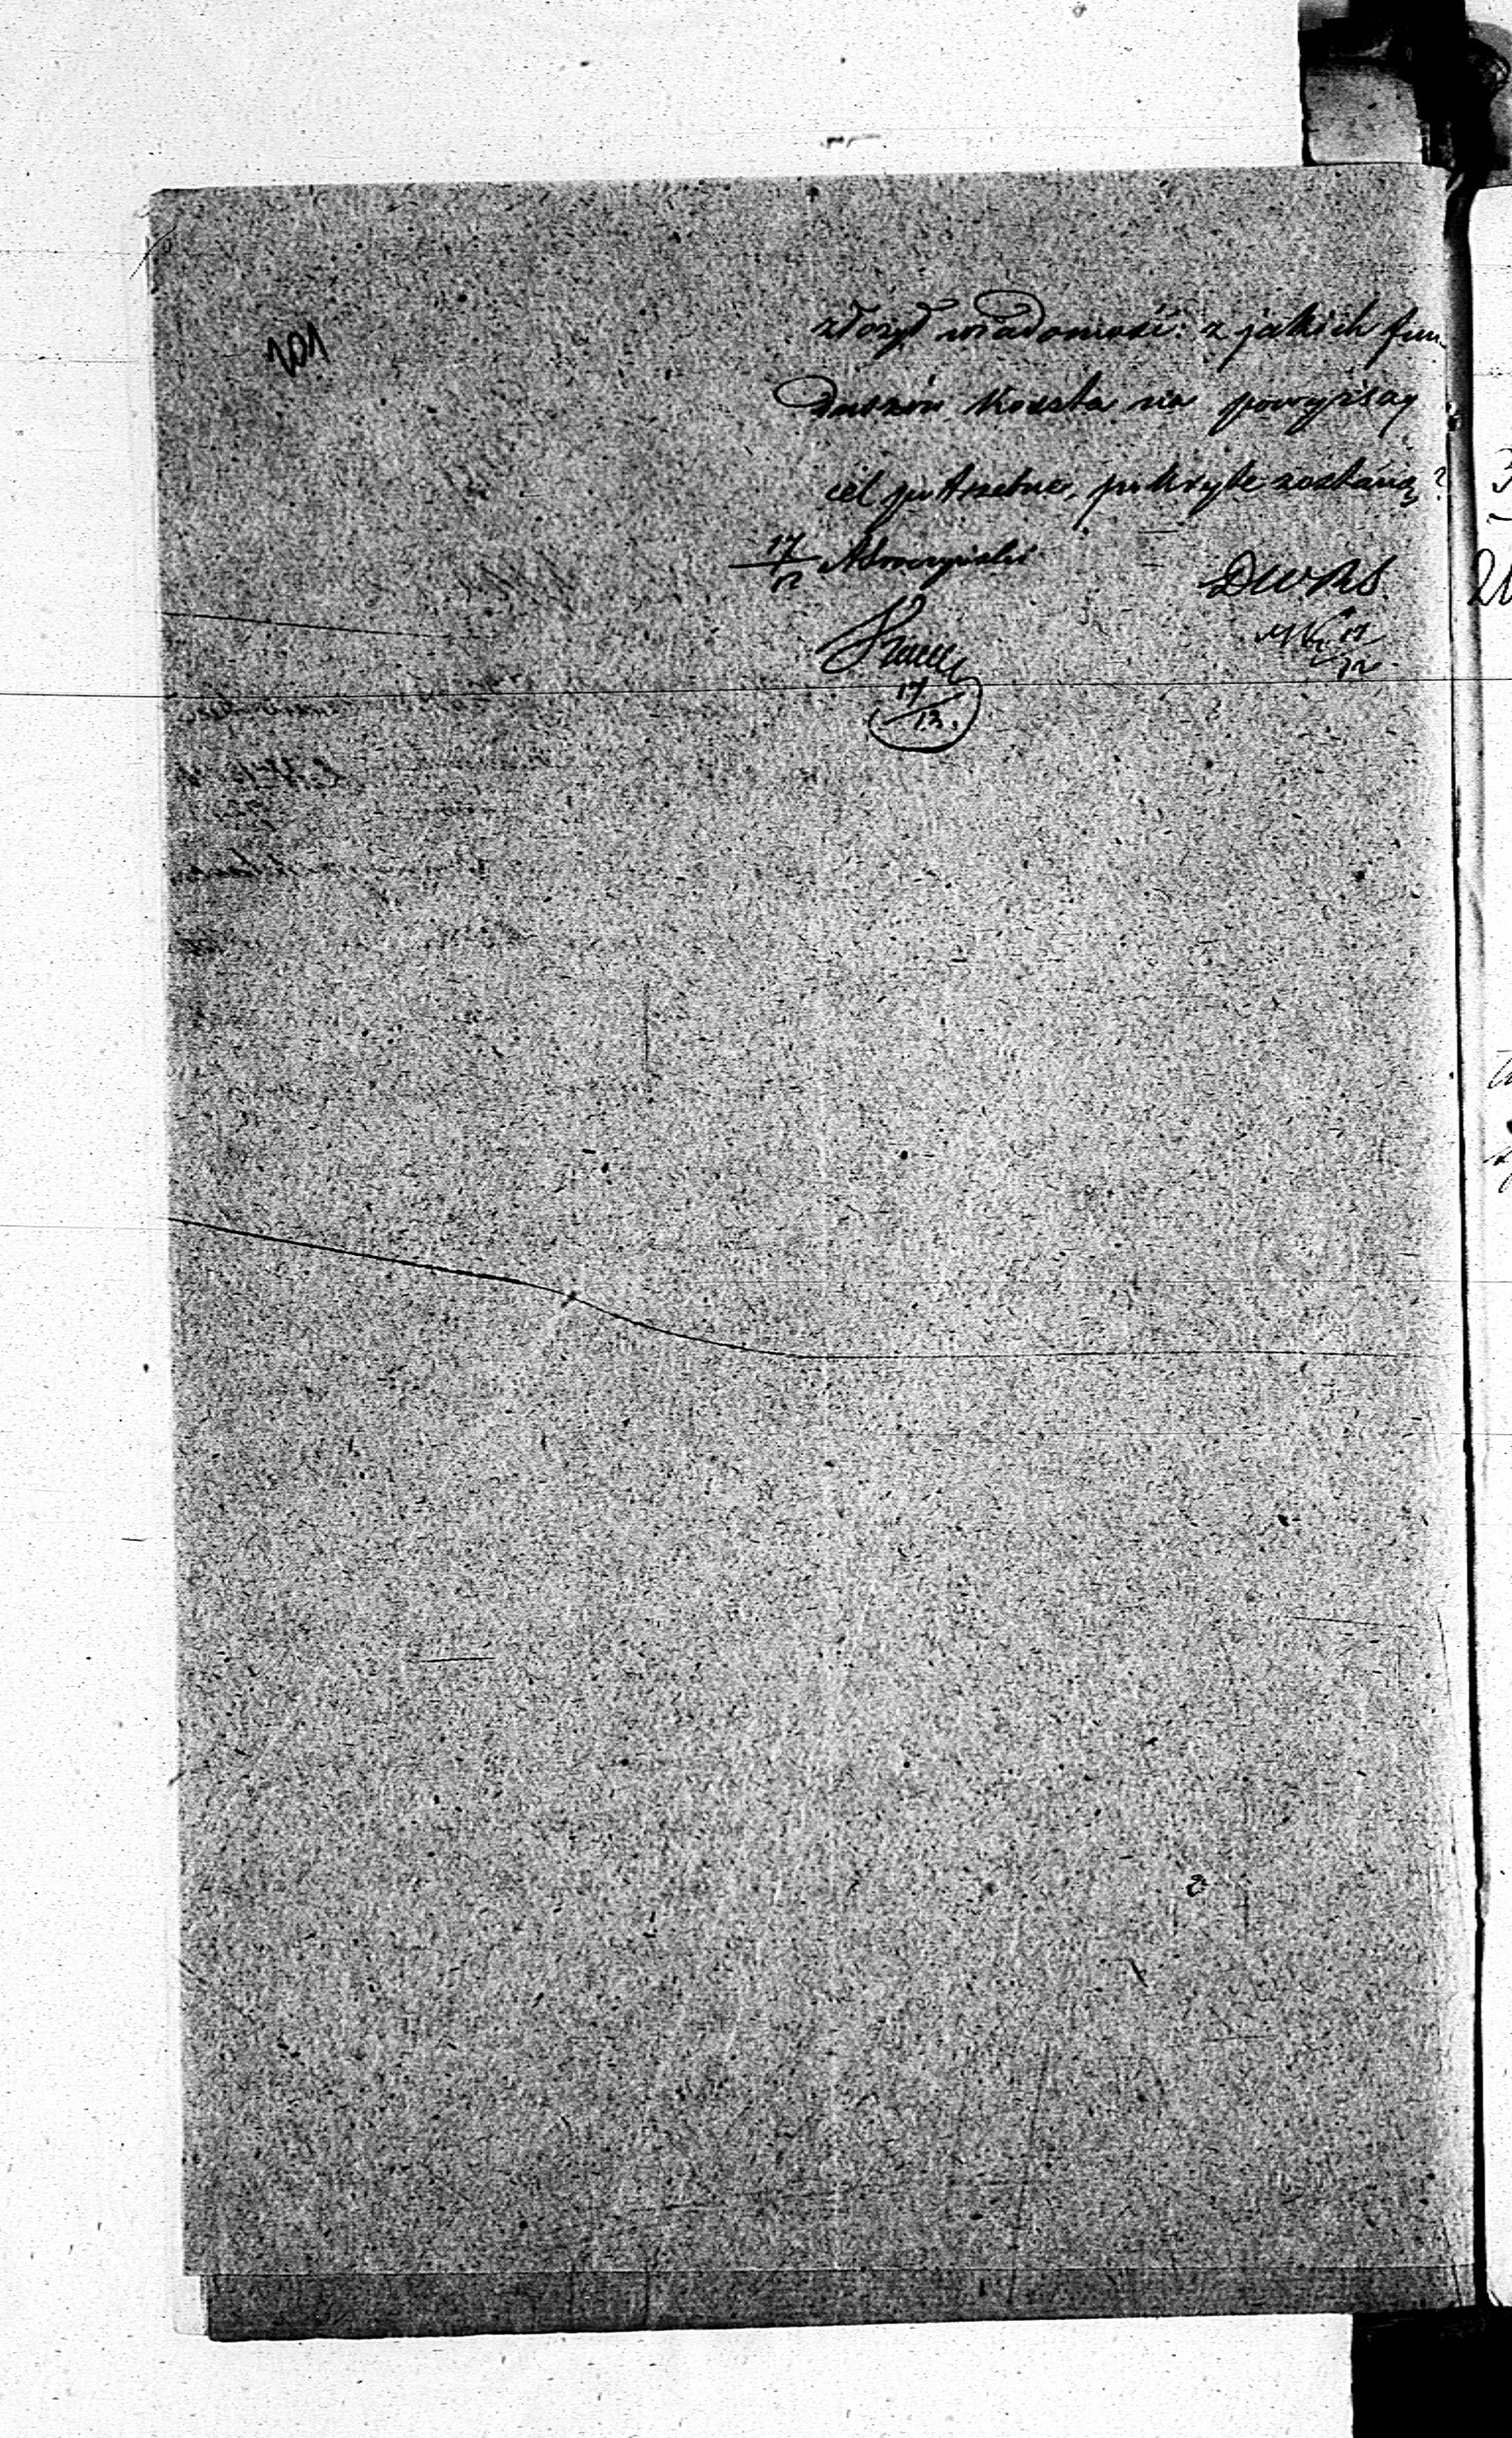 101
złożył wiadomość: z jakich fun-
duszów koszta na powyższy
cel potrzebne, pokryte zostaną?
17/12
DWRS
17/12
17/12.